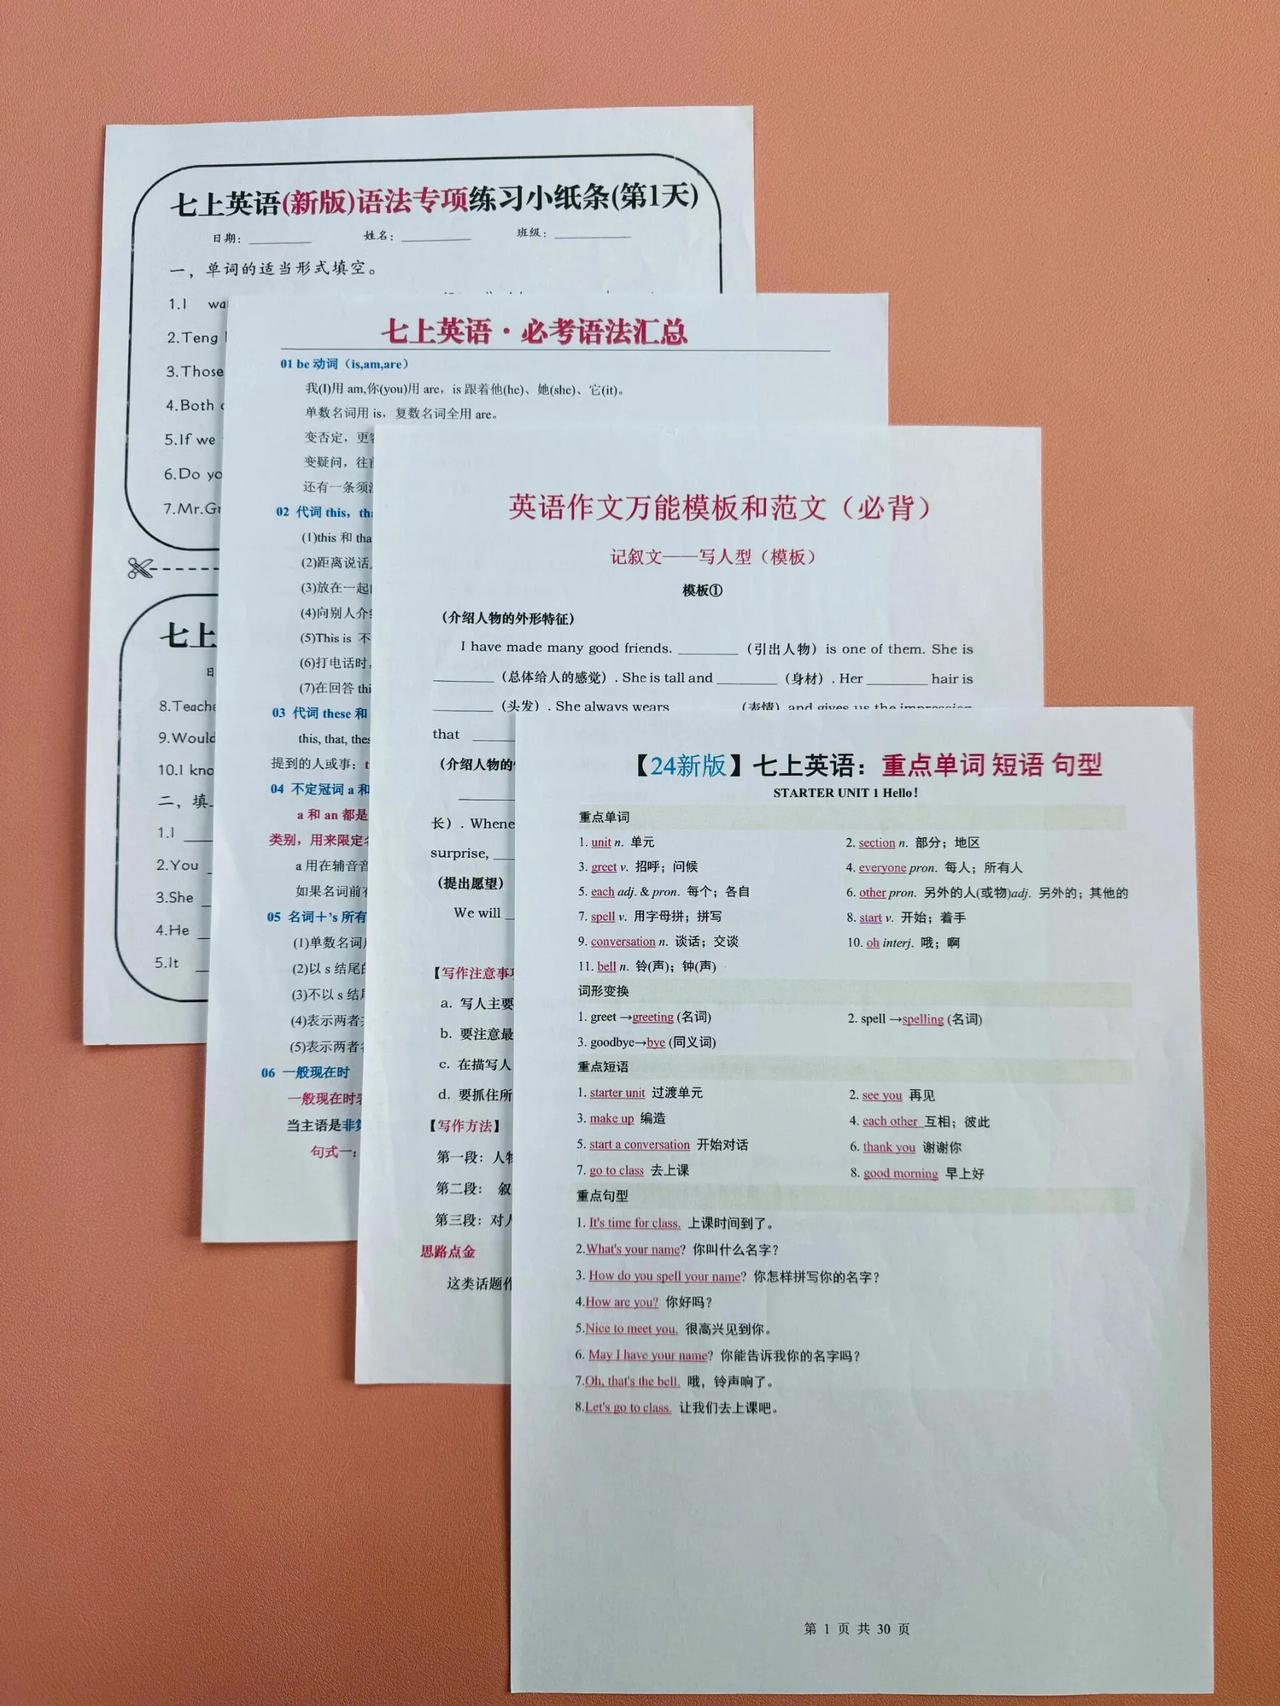 七上英语(新版)语法专项练习小纸条(第1天)
日期: 姓名: 班级:
一，单词的适当形式填空。
1.I
2.Teng
3.Those
4.Both
5.If we
6.Do
7.Mr.
七上
8.
9.Would
10.I
二，填
1.I
2.You
3.She
4.He
5.It
七上英语·必考语法汇总
01 be 动词（is,am,are）
我(I)用 am,你(you)用 are，is 跟着他(he)、她(she)、它(it)。
单数名词用 is，复数名词全用 are。
变否定，更
变疑问，往
还有一条须
02 代词 this，
(1)this 和
(2)距离说话
(3)放在一起
(4)向别人介
(5)This is 不
(6)打电话时，
(7)在回答
03 代词 these 和
this, that,
提到的人或事；
04 不定冠词 a 和
a 和 an 都是
类别，用来限定
a 用在辅音
如果名词前
05 名词＋'s 所有
(1)单数名词
(2)以 s 结尾的
(3)不以 s 结
(4)表示两者
(5)表示两者
06 一般现在时
一般现在时
当主语是非
句式一：
英语作文万能模板和范文（必背）
记叙文——写人型（模板）
模板①
（介绍人物的外形特征）
I have made many good friends. ________ （引出人物）is one of them. She is
________ （总体给人的感觉）. She is tall and ________ （身材）. Her ________ hair is
________ （头发）. She always wears ________ （表情）and gives us the impression
that
（介绍人物的
长）.
surprise,
（提出愿望）
We will
【写作注意事
a. 写人主要
b. 要注意最
c. 在描写人
d. 要抓住所
【写作方法】
第一段：人
第二段： 叙
第三段：对
思路点金
这类话题
【24新版】七上英语：重点单词 短语 句型
STARTER UNIT 1 Hello!
重点单词
1. unit n. 单元 2. section n. 部分；地区
3. greet v. 招呼；问候 4. everyone pron. 每人；所有人
5. each adj. & pron. 每个；各自 6. other pron. 另外的人(或物)adj. 另外的；其他的
7. spell v. 用字母拼；拼写 8. start v. 开始；着手
9. conversation n. 谈话；交谈 10. oh interj. 哦；啊
11. bell n. 铃(声)；钟(声)
词形变换
1. greet →greeting (名词) 2. spell →spelling (名词)
3. goodbye→bye (同义词)
重点短语
1. starter unit 过渡单元 2. see you 再见
3. make up 编造 4. each other 互相；彼此
5. start a conversation 开始对话 6. thank you 谢谢你
7. go to class 去上课 8. good morning 早上好
重点句型
1. It's time for class. 上课时间到了。
2.What's your name? 你叫什么名字？
3. How do you spell your name? 你怎样拼写你的名字？
4.How are you? 你好吗？
5.Nice to meet you. 很高兴见到你。
6. May I have your name? 你能告诉我你的名字吗？
7.Oh, that's the bell. 哦，铃声响了。
8.Let's go to class. 让我们去上课吧。
第 1 页 共 30 页